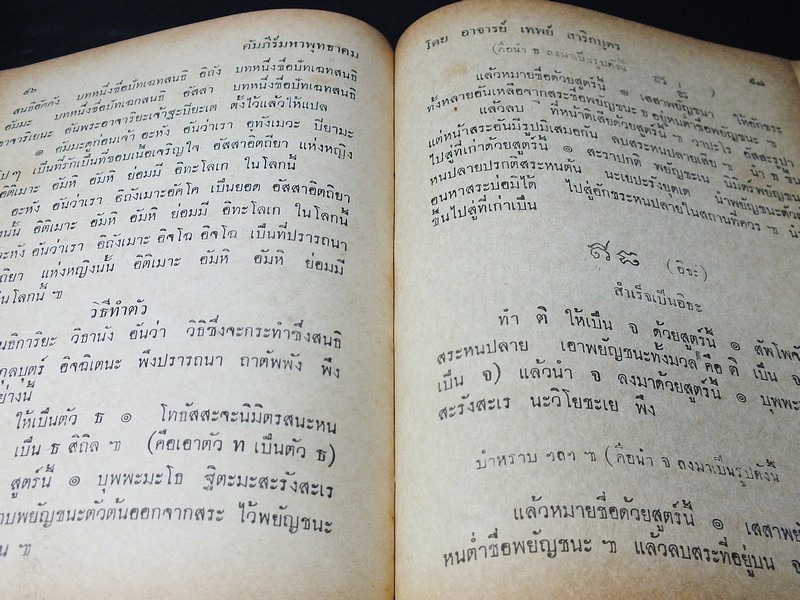 ๕๖ คัมภีร์มหาพุทธาคม
สนธิอักตัง บทหนึ่งชื่อบัทเฉทสนธิ อิถัง บทหนึ่งชื่อบัทเฉทสนธิ
อัมมะ บทหนึ่งชื่อบัทเฉทสนธิ อัสสา บทหนึ่งชื่อบัทเฉทสนธิ
อาจาริเยนะ อันพระอาจาริยะเจ้าฐะปิยะเต ตั้งไว้แล้วให้แปล
๑ อัมมะดูก่อนเจ้า อะหัง อันว่าเรา อุทังเมวะ ปิยามะ
เป็นที่รักเป็นที่ชอบเนื้อเจริญใจ อัสสาอิตถิยา แห่งหญิง
อิติเมาะ อัมหิ อัมหิ ย่อมมี อิทะโลเก ในโลกนี้
อะหัง อันว่าเรา อิถังเมาะอัคโค เป็นยอด อัสสาอิตถิยา
นั้น อิติเมาะ อัมหิ อัมหิ ย่อมมี อิทะโลเก ในโลกนี้
อะหัง อันว่าเรา อิถังเมาะอิจโฉ อิจโฉ เป็นที่ปรารถนา
ถิยา แห่งหญิงนั้น อิติเมาะ อัมหิ อัมหิ ย่อมมี
ในโลกนี้ ๚
วิธีทำตัว
นธิการิยะ วิธานัง อันว่า วิธีซึ่งจะกระทำซึ่งสนธิ
กุลบุตร์ อิจฉิเตนะ พึงปรารถนา ถาตัพพัง พึง
ย่างนี้
ให้เป็นตัว ธ ๑ โทธัสสะจะนิมิตรสนะหน
เป็น ธ สิถิล ๚ (คือเอาตัว ท เป็นตัว ธ)
สูตร์นี้ ๑ บุพพะมะโธ ฐิตะมะสะรังสะเร
าบพยัญชนะตัวต้นออกจากสระ ไว้พยัญชนะ
น ๚
โดย อาจารย์ เทพย์ สาริกบุตร ๕๗
(คือนำ ธ ลงมาเป็นรูปดังนี้
แล้วหมายชื่อด้วยสูตร์นี้ ๑ เสสาพยัญชนา ให้อักขระ
ทั้งหลายอันเหลือจากสระชื่อพยัญชนะ ธ อยู่หน้าชื่อพยัญชนะ ๚
แล้วลบ ที่หน้าติเสียด้วยสูตร์นี้ ๚ วาปะโร อัสสะรูปา
แต่หน้าสระอันมีรูปมิเสมอกัน ลบสระหนปลายเสีย ๚ นำ ธ ขึ้น
ไปสู่ที่เก่าด้วยสูตร์นี้ ๑ สะราปกติ พยัญชะเน นิมิตรพยัญชนะ
หนปลายปรกติสระหนต้น นะเยปะรังยุตเต นำพยัญชนะตัว
อนหาสระบ่อมิได้ ไปสู่อักขระหนปลายในสถานที่ควร ๚ นำ
ขึ้นไปสู่ที่เก่าเป็น
(อิธะ)
สำเร็จเป็นอิธะ
ทำ ติ ให้เป็น จ ด้วยสูตร์นี้ ๑ สัพโพจั
สระหนปลาย เอาพยัญชนะทั้งมวล คือ ติ เป็น จ
เป็น จ) แล้วนำ จ ลงมาด้วยสูตร์นี้ ๑ บุพพะ
สะรังสะเร นะวิโยชะเย พึง
บำหราบ ๚ (คือนำ จ ลงมาเป็นรูปดังนี้
แล้วหมายชื่อด้วยสูตร์นี้ ๑ เสสาพยั
หนต่ำชื่อพยัญชนะ ๚ แล้วลบสระที่อยู่บน จ